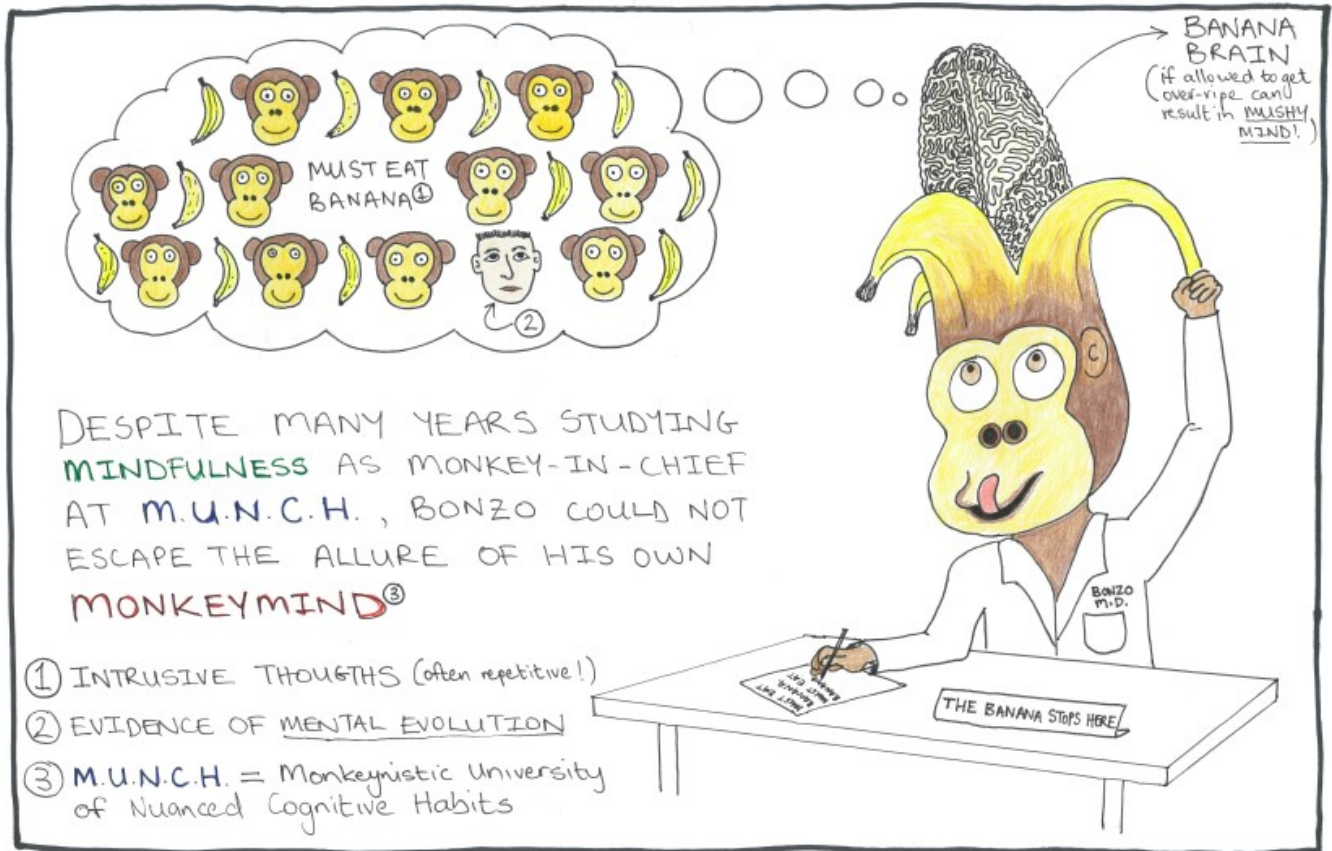 MUST EAT
BANANA①
②
BANANA
BRAIN
(if allowed to get
over-ripe can
result in MUSHY
MIND!)
DESPITE MANY YEARS STUDYING
MINDFULNESS AS MONKEY-IN-CHIEF
AT M.U.N.C.H., BONZO COULD NOT
ESCAPE THE ALLURE OF HIS OWN
MONKEYMIND③
① INTRUSIVE THOUGTHS (often repetitive!)
② EVIDENCE OF MENTAL EVOLUTION
③ M.U.N.C.H. = Monkeynistic University
of Nuanced Cognitive Habits
BONZO
M.D.
MUST EAT
BANANA
MUST EAT
BANANA
THE BANANA STOPS HERE